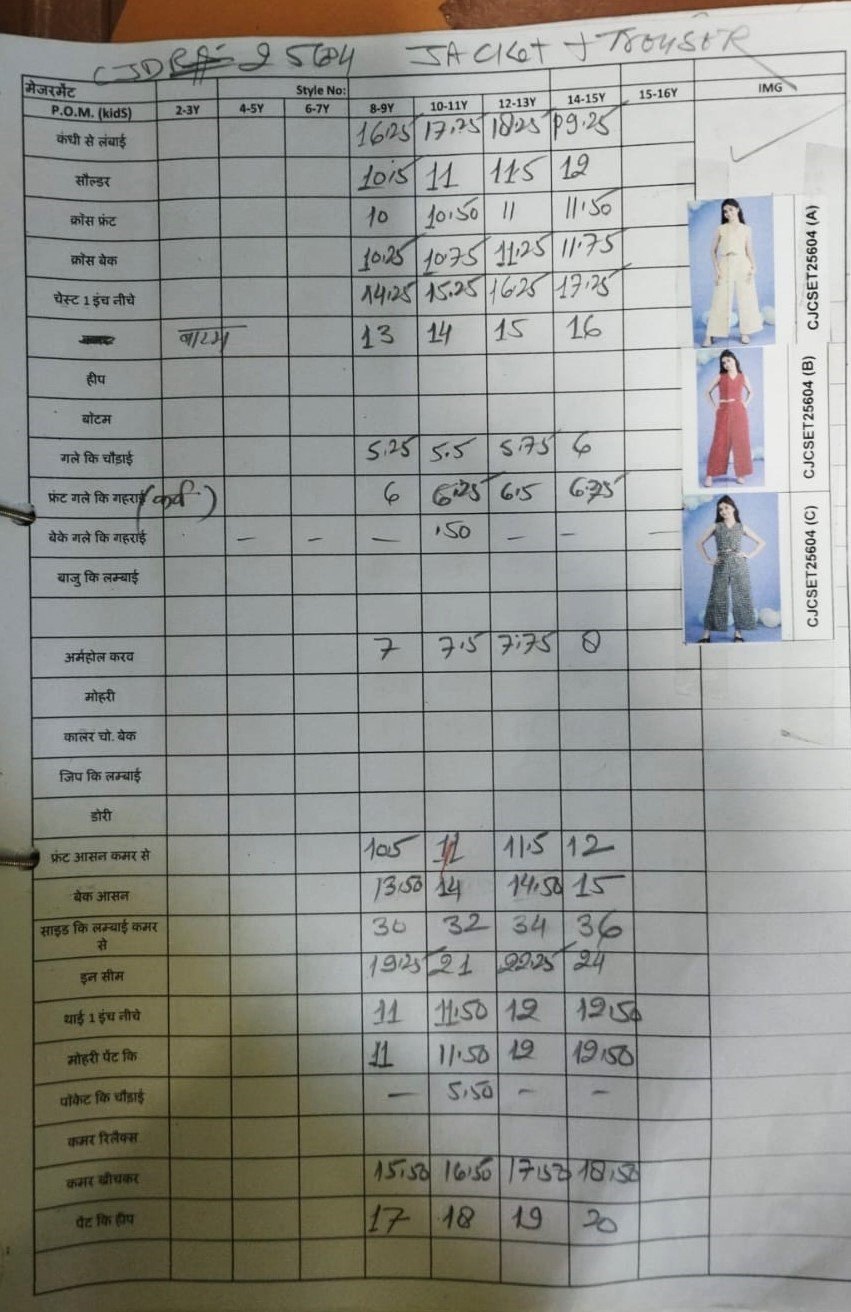 25604 JACKET + TROUSER
मेजरमेंट Style No: IMG
P.O.M. (kidS) 2-3Y 4-5Y 6-7Y 8-9Y 10-11Y 12-13Y 14-15Y 15-16Y
कंधी से लंबाई 16.25 17.25 18.25 19.25
सौल्डर 10.5 11 11.5 12
क्रॉस फ्रंट 10 10.50 11 11.50
क्रॉस बेक 10.25 10.75 11.25 11.75
चेस्ट 1 इंच नीचे 14.25 15.25 16.25 17.25
बाटम 13 14 15 16
हीप
बोटम
गले कि चौड़ाई 5.25 5.5 5.75 6
फ्रंट गले कि गहराई 6 6.25 6.5 6.75
बेके गले कि गहराई — — — .50 — — —
बाजु कि लम्बाई
अर्महोल करव 7 7.5 7.75 8
मोहरी
कालर चो. बेक
जिप कि लम्बाई
डोरी
फ्रंट आसन कमर से 10.5 11 11.5 12
बेक आसन 13.50 14 14.50 15
साइड कि लम्बाई कमर से 30 32 34 36
इन सीम 19.25 21 22.25 24
थाई 1 इंच नीचे 11 11.50 12 12.50
मोहरी पेंट कि 11 11.50 12 12.50
पॉकेट कि चौड़ाई — 5.50 — —
कमर रिलैक्स
कमर खीचकर 15.50 16.50 17.50 18.50
पेंट कि हीप 17 18 19 20
CJCSET25604 (A)
CJCSET25604 (B)
CJCSET25604 (C)